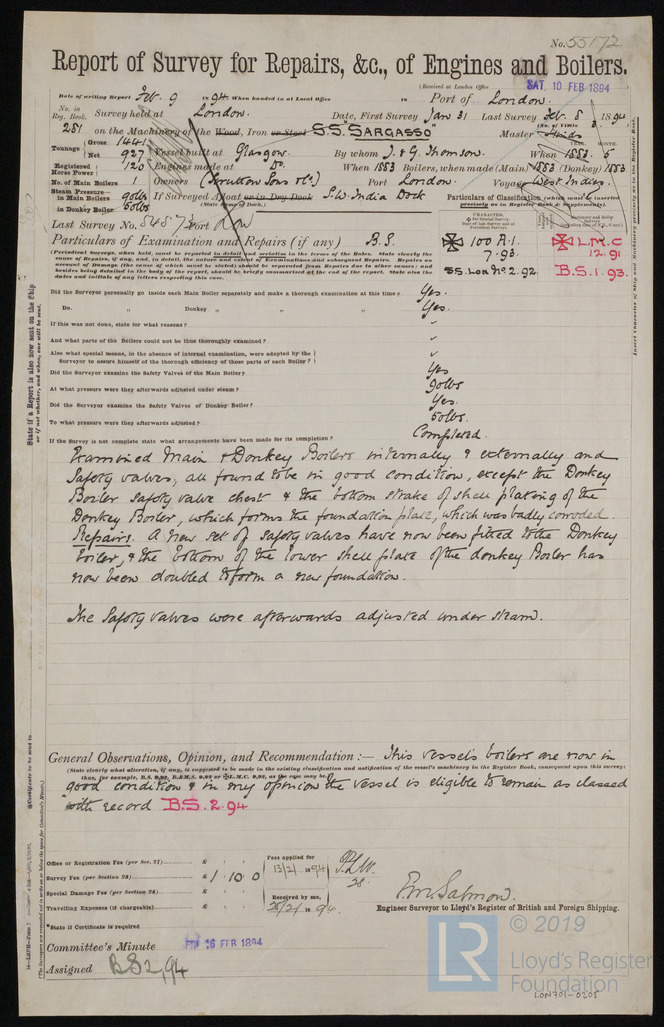 No. 55172
Report of Survey for Repairs, &c., of Engines and Boilers.
(Received at London Office SAT. 10 FEB 1894
Date of writing Report Feb. 9 1894 When handed in at Local Office 18 Port of London.
No. in Reg. Book. Survey held at London. Date, First Survey Jan 31 Last Survey Feb. 8 1894
281 on the Machinery of the Wood, Iron or Steel S.S. "SARGASSO" Master Hinds
Tonnage Gross 1441 Net 927 Vessel built at Glasgow. By whom J. & G. Thomson. When 1883. 5
Registered Horse Power 120 Engines made at Do. When 1883 Boilers, when made (Main) 1883 (Donkey) 1883
No. of Main Boilers 1 Owners (Scrutton Sons & Co) Port London. Voyage West Indies.
Steam Pressure in Main Boilers 90lbs If Surveyed Afloat or in Dry Dock S.W. India Dock
in Donkey Boiler 50lbs (State name of Dock.)
Particulars of Classification (which must be inserted precisely as in Register Book & Supplements).
Last Survey No. 54873 Port Lon
Particulars of Examination and Repairs (if any) B.S.
100 A.1. L.M.C
7.93. 12.91
S.S. Lon. No. 2.92. B.S. 1.93.
(Periodical Surveys, when held, must be reported in detail and seriatim in the terms of the Rules. State clearly the
cause of Repairs, if any, and, in detail, the nature and extent of Examinations and subsequent Repairs. Repairs on
account of Damage (the cause of which must be stated) should be separated from Repairs due to other causes; and
besides being detailed in the body of the report, should be briefly summarised at the end of the report. State also the
dates and initials of any letters respecting this case.
Did the Surveyor personally go inside each Main Boiler separately and make a thorough examination at this time? Yes.
Do. " Donkey " " " Yes.
If this was not done, state for what reasons?
And what parts of the Boilers could not be thus thoroughly examined?
Also what special means, in the absence of internal examination, were adopted by the
Surveyor to assure himself of the thorough efficiency of those parts of each Boiler?
Did the Surveyor examine the Safety Valves of the Main Boiler? Yes
At what pressure were they afterwards adjusted under steam? 90lbs
Did the Surveyor examine the Safety Valves of Donkey Boiler? Yes.
To what pressure were they afterwards adjusted? 50lbs.
If the Survey is not complete state what arrangements have been made for its completion? Completed.
Examined Main & Donkey Boilers internally & externally and
Safety valves, all found to be in good condition, except the Donkey
Boiler safety valve chest & the bottom strake of shell plating of the
Donkey Boiler, which forms the foundation plate, which was badly corroded.
Repairs. A new set of safety valves have now been fitted to the Donkey
boiler, & the bottom of the lower shell plate of the donkey Boiler has
now been doubled to form a new foundation.
The Safety valves were afterwards adjusted under steam.
General Observations, Opinion, and Recommendation :— This vessel's boilers are now in
(State clearly what alteration, if any, is suggested to be made in the existing classification and notification of the vessel's machinery in the Register Book, consequent upon this survey;
thus, for example, B.S. 9,92, B.&M.S. 9,92 or L.M.C. 9,92, as the case may be.)
good condition & in my opinion the vessel is eligible to remain as classed
with record B.S. 2.94
Office or Registration Fee (per Sec. 27) £ Fees applied for
Survey Fee (per Section 28) £ 1 . 10 0 13/2/1894
Special Damage Fee (per Section 28) £ Received by me,
Travelling Expenses (if chargeable) £ 28/2/1894.
F.W. Salmon.
Engineer Surveyor to Lloyd's Register of British and Foreign Shipping.
*State if Certificate is required
Committee's Minute FRI 16 FEB 1894
Assigned B S 2,94
State if a Report is also now sent on the Ship
or if not whether, and when, one will be sent.
© 2019
LR
Lloyd's Register
Foundation
LON701-0205